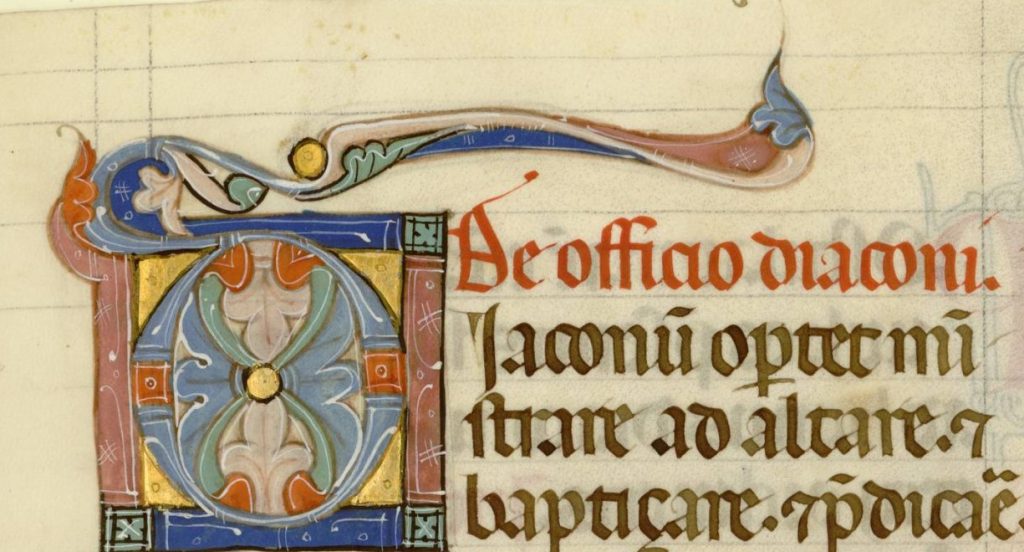 De officio diaconi.
Diaconū op̱tet mī
strare ad altare. ⁊
baptiçare. ⁊ p̄dicar̄e.